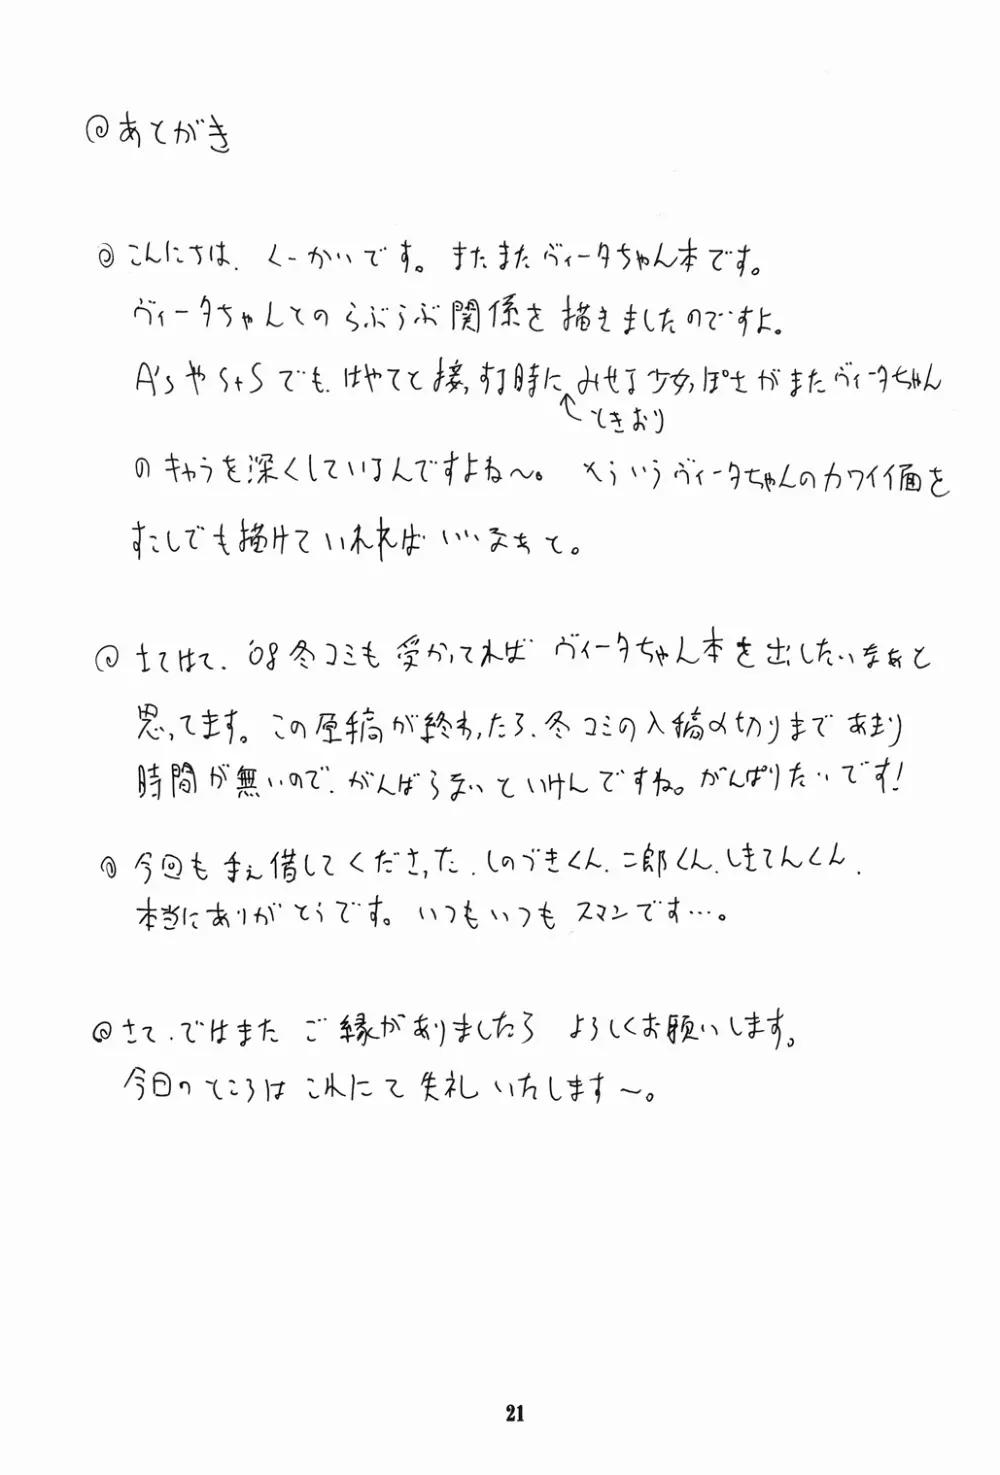 @あとがき
@こんにちは、くーかいです。またまたヴィータちゃん本です。
ヴィータちゃんとのらぶらぶ関係を描きましたのですよ。
A'sやStSでも、はやてと接っする時にみせる少女っぽさがまたヴィータちゃん
↑ときおり
のキャラを深くしているんですよね〜。そういうヴィータちゃんのカワイイ面を
すこしでも描けていれればいいなぁと。
@さてはて、'08冬コミも受かってればヴィータちゃん本を出したいなぁと
思ってます。この原稿が終わったら、冬コミの入稿〆切りまであまり
時間が無いので、がんばらないといけんですね。がんばりたいです!
@今回も手え借してくださった、しのづきくん、二郎くん、しきてんくん、
本当にありがとうです。いつもいつもスマンです…。
@さて、ではまたご縁がありましたらよろしくお願いします。
今日のところはこれにて失礼いたします〜。
21